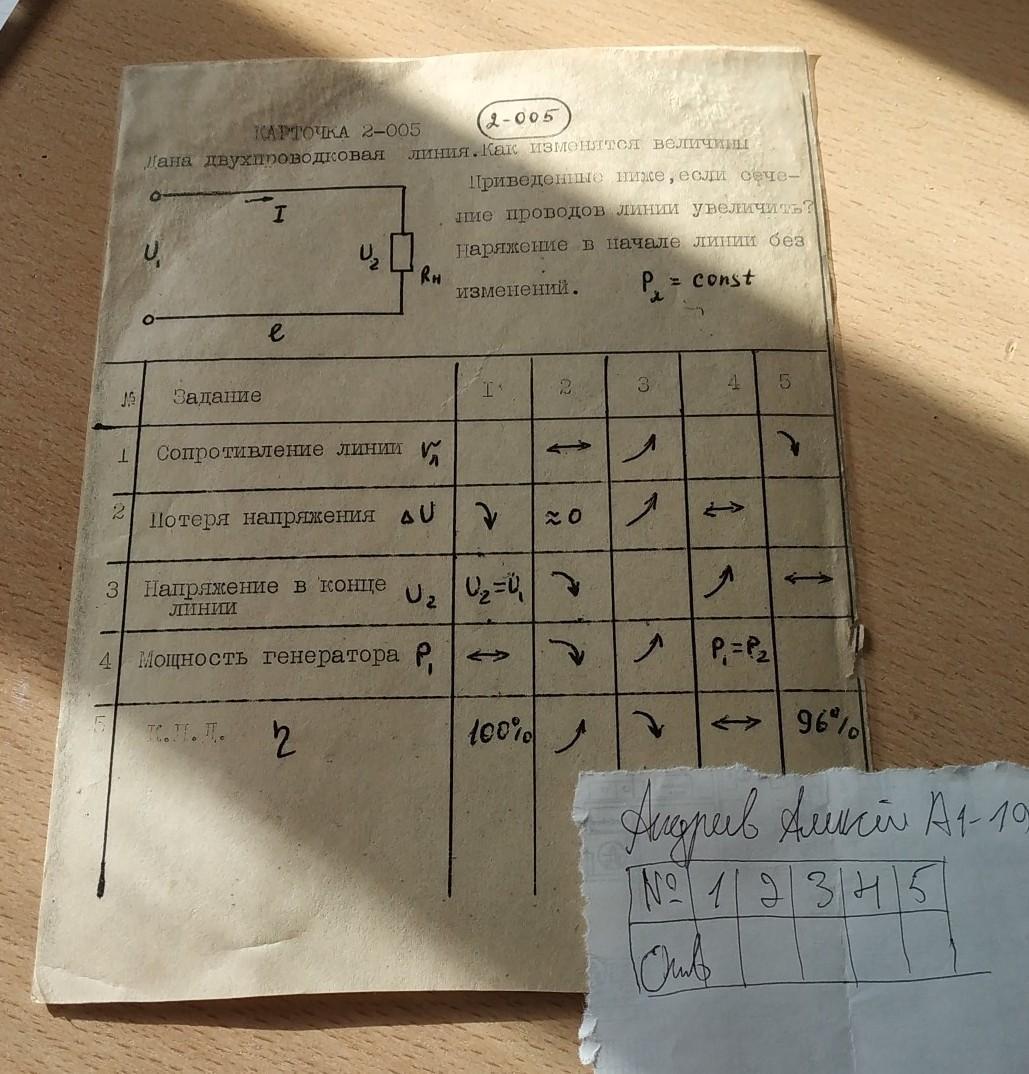 2-005
КАРТОЧКА 2-005
Дана двухпроводковая линия. Как изменятся величины
Приведенные ниже, если сече-
ние проводов линии увеличить?
Наряжение в начале линии без
изменений. P₂ = const
I
U₁
U₂
Rн
ℓ
№ Задание I 2 3 4 5
1 Сопротивление линии rл ↔ ↗ ↘
2 Потеря напряжения ΔU ↘ ≈0 ↗ ↔
3 Напряжение в конце линии U₂ U₂=U₁ ↘ ↗ ↔
4 Мощность генератора P₁ ↔ ↘ ↗ P₁=P₂
5 К.П.Д. η 100% ↗ ↘ ↔ 96%
Андреев Алексей А1-19
№ 1 2 3 4 5
Отв